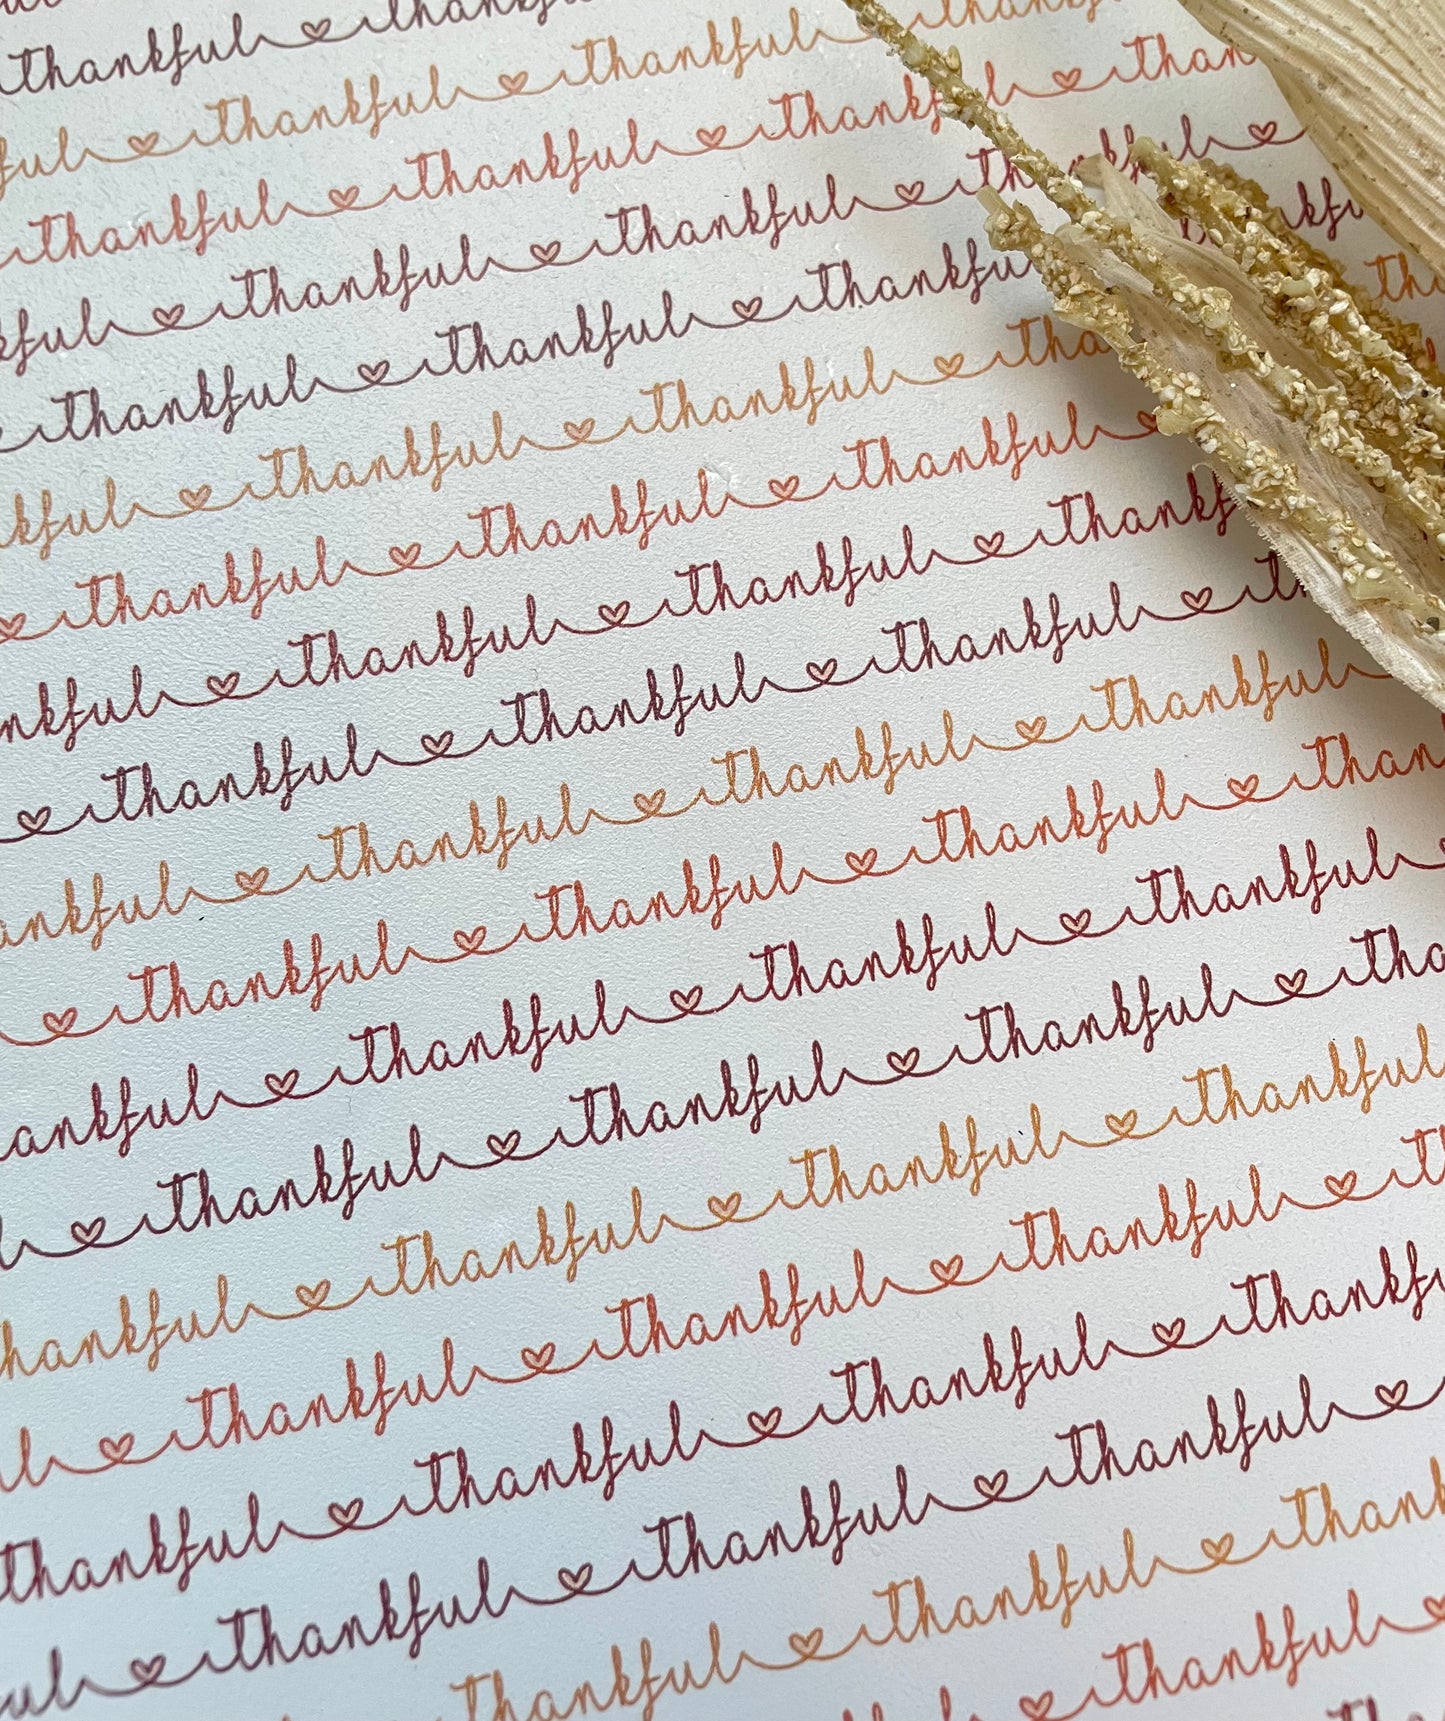 thankful thankful
ful thankful thankful thankful
thankful thankful thankful than
kful thankful thankful thankful
thankful thankful thankfu nkfu
kful thankful thankful tha th
thankful thankful thankful
nkful thankful thankful thankf
thankful thankful thankful th
ankful thankful thankful thankful
thankful thankful thankful than
ankful thankful thankful thankful
l thankful thankful thankful tha
hankful thankful thankful thankful
ul thankful thankful thankful th
thankful thankful thankful thankfu
ul thankful thankful thankful
thankful thankful thank
thankful thankful